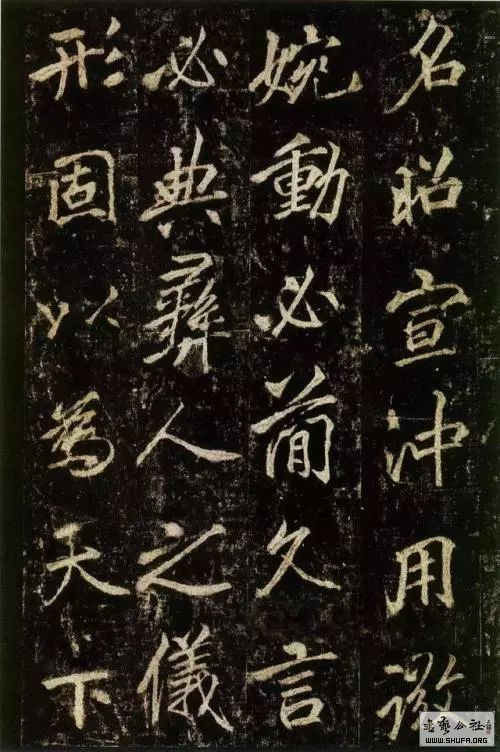 名昭宣沖用微
婉動必簡久言
必典彝人之儀
形固以為天下
書藝公社
WWW.SHUFA.ORG